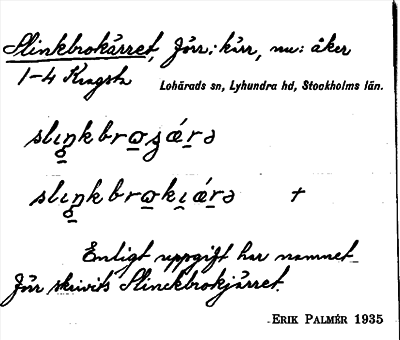 Slinkbrokärret, förr: kärr, nu: åker
1-4 Kragsta
Lohärads sn, Lyhundra hd, Stockholms län.
Enligt uppgift har namnet
förr skrivits Slinckbrokjärret.
ERIK PALMÉR 1935